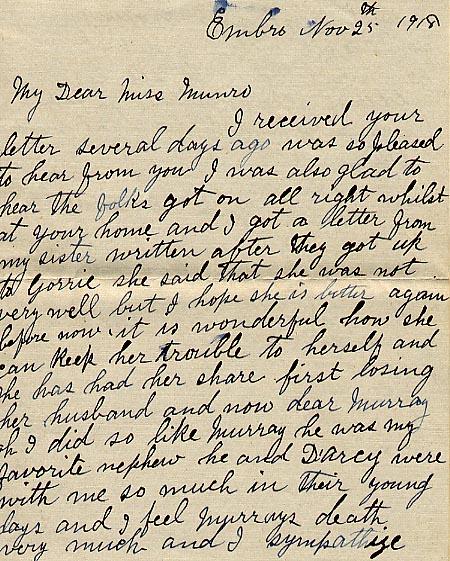 Embro Nov 25th 1918
My Dear Miss Munro
I received your
letter several days ago was so pleased
to hear from you I was also glad to
hear the folks got on all right whilst
at your home and I got a letter from
my sister written after they got up
to Gorrie she said that she was not
very well but I hope she is better again
before now. it is wonderful how she
can keep her trouble to herself and
she has had her share first losing
her husband and now dear Murray
oh I did so like Murray he was my
favorite nephew he and D'arcy were
with me so much in their young
days and I feel Murrays death
very much and I sympathize